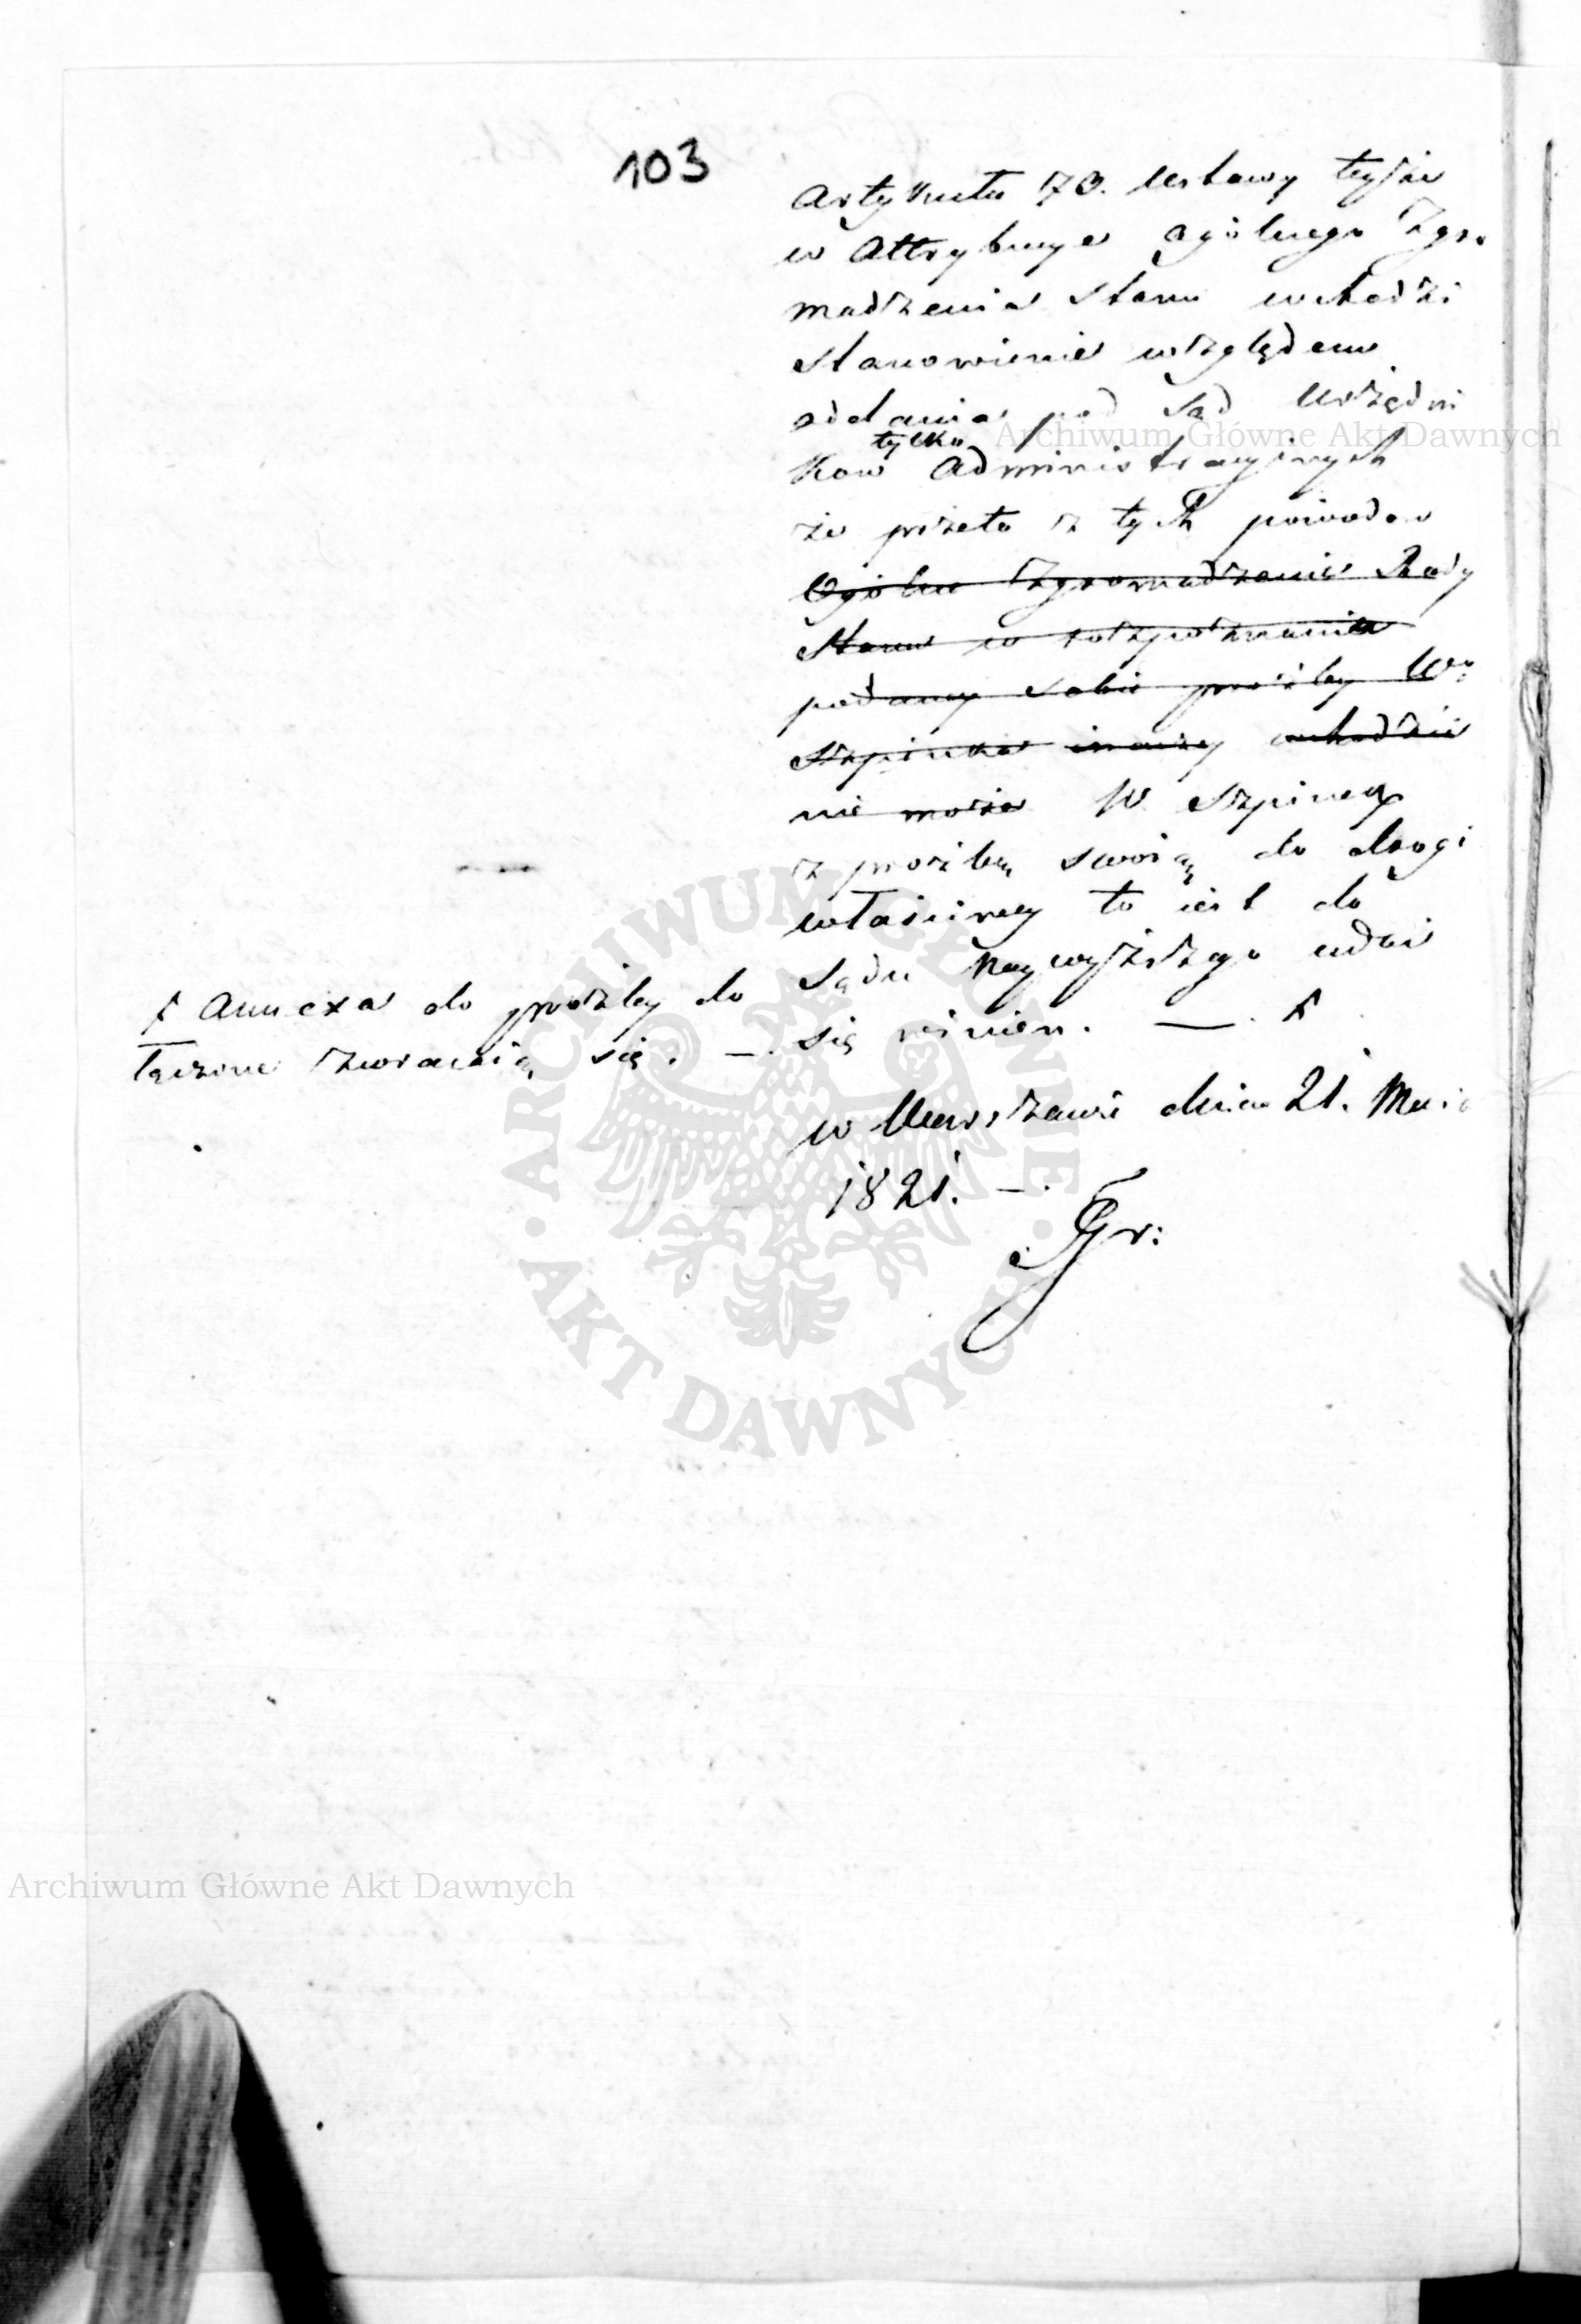 103
Artykułu 73. Ustawy teyże
w Attrybucye ogólnego Zgro
madzenia Stanu wchodzi
stanowienie względem
oddania pod Sąd Urzędni
tylko
kow Administracyjnych
że przeto z tych powodow
Ogólne Zgromadzenie Rady
Stanu w rozpoznanie
podaney sobie proźby W°
Szpineka inaczey wchodzić
nie może W. Szpinek
z proźbą swoią do drogi
właściwey to iest do
Sądu Naywyższego udać
się winien. —. F
F Annexa do proźby do
łączone zwracaią się. —.
w Warszawie dnia 21. Maia
1821. —.
Gr:
Archiwum Główne Akt Dawnych
Archiwum Główne Akt Dawnych
ARCHIWUM GŁÓWNE
AKT DAWNYCH